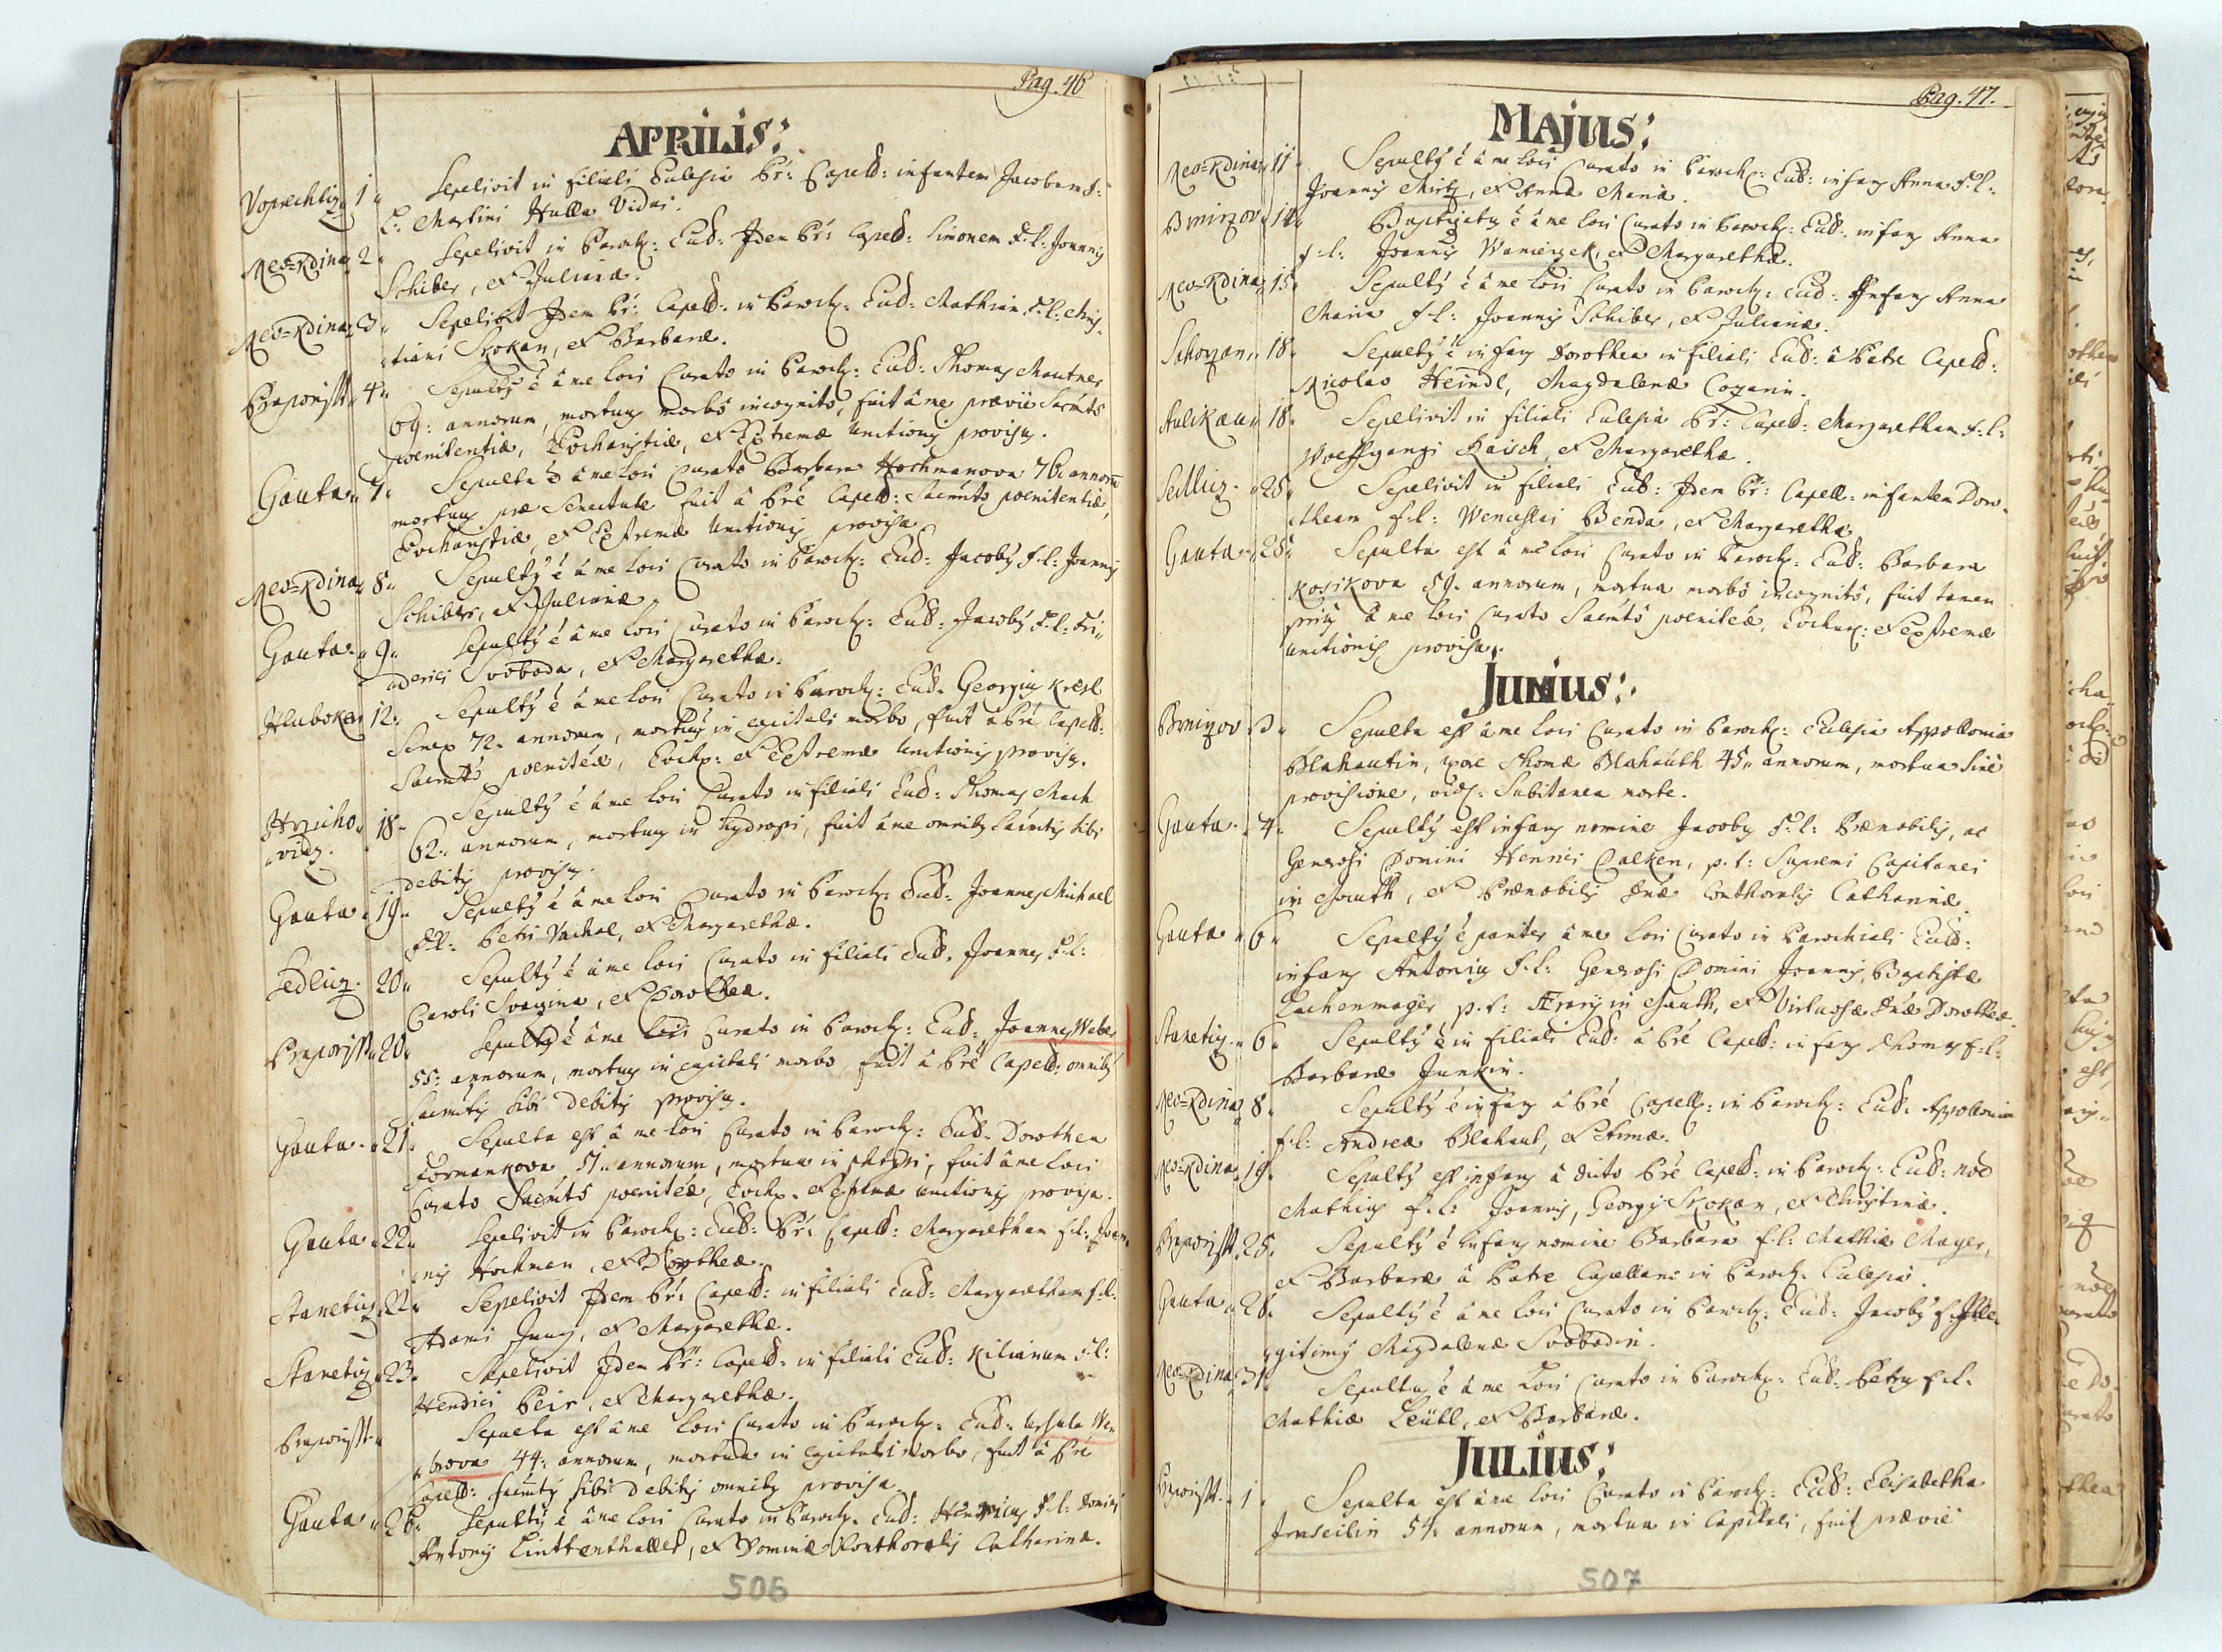 Pag. 46
APRILIS:
Voprechtiz 1 Sepelivit in filiali Eulesia Pr: Capell: infantem Jacobum f:
L: Martini Hulla Vidui.
Neo=Rdina 2 Sepelivit in Paroch: Eccl: Idem Pr: Capell: Simonem f.l: Joannis
Schiber, et Julianæ.
Neo=Rdina 3 Sepelivit Idem Pr: Capell: in Paroch: Eccl: Mathiam f.l: Chris-
tiani Skokan, et Barbaræ.
4 Sepultus ē â me loci Curato in Paroch: Eccl: Thomas Mautner
69: annorum, mortuus morbô incognito, fuit â me præviè Sacrmts
poenitentiæ, Eucharistiæ, et Extremæ Unctionis provisus.
Gauta 7 Sepulta ē â me loci Curato Barbara Hochmanova 76 annorum
mortua præ Senectute fuit â Prē Capell: Sacrmto poenitentiæ,
Eucharistiæ, et Extremæ Unctionis provisa
Neo=Rdina 8 Sepultus ē â me loci Curato in Paroch: Eccl: Jacobus f.l: Joannis
Schiber, et Julianæ
Gauta 9 Sepultus ē â me loci Curato in Paroch: Eccl: Jacobus f.l: Fri-
derici Svoboda, et Margarethæ.
Hluboka 12 Sepultus ē â me loci Curato in Paroch: Eccl. Georgius Kresl
Senex 72. annorum, mortuus in capitali morbo, fuit â Prē Capell:
Sacrmto poenitēæ, Euch: et Extremæ Unctionis provisus.
18 Sepultus ē â me loci Curato in filiali Eccl: Thomas Mach
62. annorum, mortuus in hydropi, fuit â me omnibus Sacrmtis sibi
debitis provisus.
Gauta 19 Sepultus ē â me loci Curato in Paroch: Eccl. Joannes Michael
f.l: Petri Vachal, et Margarethæ.
Sedliz. 20 Sepultus ē â me loci Curato in filiali Eccl. Joannes f.l:
Caroli et Dorotheæ.
20 Sepultus ē â me loci Curato in Paroch: Eccl: Joannes Weber
55: annorum, mortuus in capitali morbo, fuit â Prē Capell: omnibus
Sacrmtis sibi debitis provisus.
Gauta 21 Sepulta est â me loci Curato in Paroch: Eccl. Dorothea
57 annorum, mortua in phtysi, fuit â me loci
Curato Sacrmts poenitēæ, Euch. et Extremæ Unctionis provisa.
Gauta 22 Sepelivit in Paroch: Eccl: Pr: Capell: Margaretham f.l: Joan-
nis Hochman, et Dorotheæ.
Stanetiz 22 Sepelivit Idem Pr: Capell: in filiali Eccl: Margaretham f.l.
Adami Jung, et Margarethæ.
Stanetiz 23 Sepelivit Idem Pr: Capell: in filiali Eccl: Kilianum f.l:
Henrici Peir, et Margarethæ.
Sepulta est â me loci Curato in Paroch: Eccl: Ursula We-
berova 44: annorum, mortua in capitali morbo, fuit â Prē
Capell: Sacrmtis sibi debitis omnibus provisa.
Gauta 26 Sepultus ē â me loci Curato in Paroch. Eccl: Henricus f.l: Domini
Antonij Linttenthaller, et Dominæ Conthoralis Catharinæ.
506
Pag. 47.
MAJUS:
Neo=Rdina 11 Sepultus ē â me loci Curato in Paroch: Eccl: infans Anna f.l:
Joannis et Anna Maria.
Bminzov 14 Baptizatus ē â me loci Curato in Paroch: Eccl: infans Anna
f.l: Joannis Wanierzek, et Margarethæ.
Neo=Rdina 15 Sepultus ē â me loci Curato in Paroch: Eccl: Infans Anna
Maria f.l: Joannis Schiber, et Julianæ.
18 Sepultus ē infans Dorothea in filiali Eccl: â Patre Capell:
Nicolao Heindl, Magdalenæ
Aulikau 18 Sepelivit in filiali Eulesia Pr: Capell: Margaretham f.l:
Wolffgangi Raisch, et Margarethæ.
Sedliz. 25 Sepelivit in filiali Eccl: Idem Pr: Capell: infantem Doro-
theam f.l: Wenceslai Benda, et Margarethæ
Gauta 28 Sepulta est â me loci Curato in Paroch: Eccl: Barbara
Kosikova 59. annorum, mortua morbô incognitô, fuit tamen
prius â me loci Curato Sacrmtô poenitēæ, Euchar: et Extremæ
Unctionis provisa.
JUNIUS:
Bminzov 3 Sepulta est â me loci Curato in Paroch: Eulesia Appollonia
Blahautin, uxor Thomæ Blahauth 45 annorum, mortua sine
provisione, videl: Subitanea morte.
Gauta 4 Sepultus est infans nomine Jacobus f.l: Prænobilis, ac
Generosi Domini Henrici Calken, p.t: Supremi Capitanei
in Kauth, et Prænobilis Dnæ Conthoralis Catharinæ.
Gauta 6 Sepultus ē pariter â me loci Curato in Parochiali Eccl:
infans Antonius f.l: Generosi Domini Joannis Baptistæ
Lachenmayer p.t: in Kauth, et Virtuosæ Dnæ Dorotheæ.
Stanetiz 6 Sepultus ē in filiali Eccl: â Prē Capell: infans Thomas f.l:
Barbaræ Junkin.
Neo=Rdina 8 Sepultus ē infans â Prē Capell: in Paroch: Eccl. Appollonia
f.l: Andreæ Blahaut, et Annæ.
Neo=Rdina 19. Sepultus est infans â dicto Prē Capell: in Paroch: Eccl: noe
Mathias f.l: Joannis, Georgij Skokan, et Christinæ.
25. Sepultus ē infans nomine Barbara f.l: Mathiæ Mayer,
et Barbaræ â Patre Capellano in Paroch: Eulesia.
Gauta 28. Sepultus ē â me loci Curato in Paroch: Eccl: Jacobus f. Ille-
gitimus Magdalenæ Svobodin.
Neo=Rdina 31 Sepultus ē â me loci Curato in Paroch: Eccl: Petrus f.l.
Mathiæ Leübl, et Barbaræ.
JULIUS:
1 Sepulta est â me loci Curato in Paroch: Eccl: Elisabetha
54. annorum, mortua in Capitali, fuit præviè
507